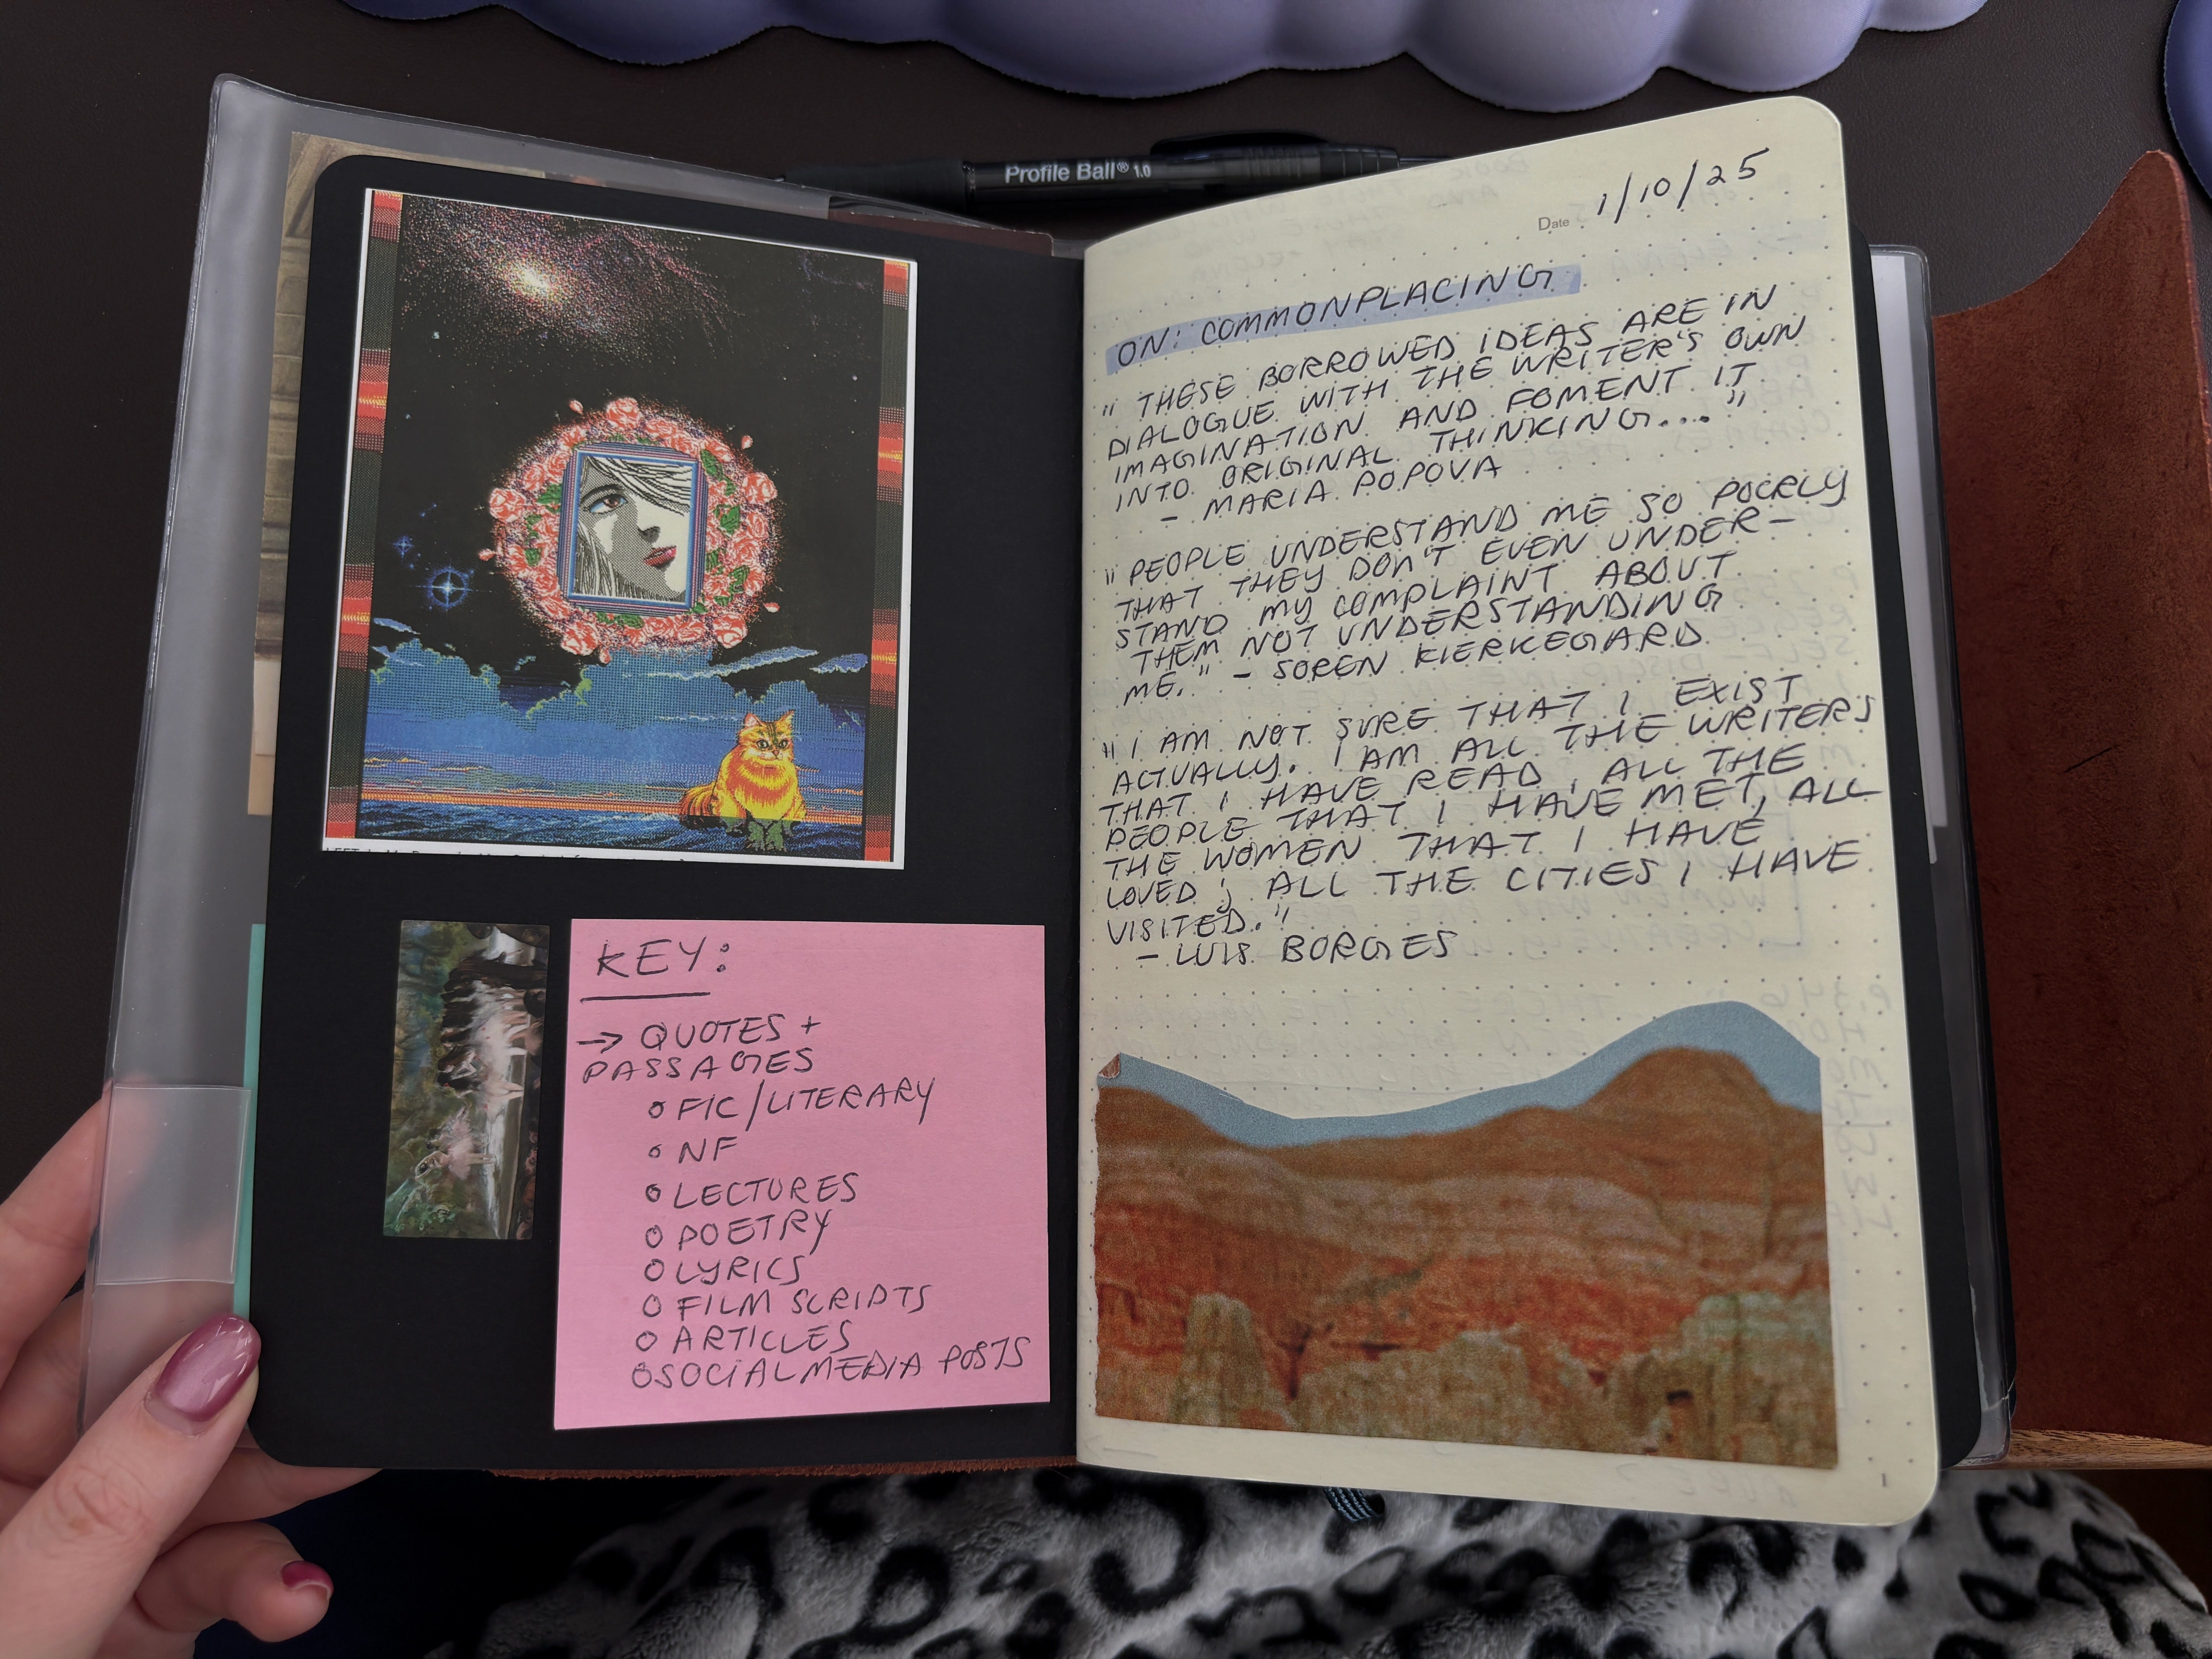 Profile Ball® 1.0
KEY:
→ QUOTES +
PASSAGES
o FIC/LITERARY
o NF
o LECTURES
o POETRY
o LYRICS
o FILM SCRIPTS
o ARTICLES
o SOCIAL MEDIA POSTS
Date 1/10/25
ON: COMMONPLACING
"THESE BORROWED IDEAS ARE IN
DIALOGUE WITH THE WRITER'S OWN
IMAGINATION AND FOMENT IT
INTO ORIGINAL THINKING...."
- MARIA POPOVA
"PEOPLE UNDERSTAND ME SO POORLY
THAT THEY DON'T EVEN UNDER-
STAND MY COMPLAINT ABOUT
THEM NOT UNDERSTANDING
ME." - SOREN KIERKEGARD
"I AM NOT SURE THAT I EXIST
ACTUALLY. I AM ALL THE WRITERS
THAT I HAVE READ, ALL THE
PEOPLE THAT I HAVE MET, ALL
THE WOMEN THAT I HAVE
LOVED; ALL THE CITIES I HAVE
VISITED."
- LUIS BORGES
1